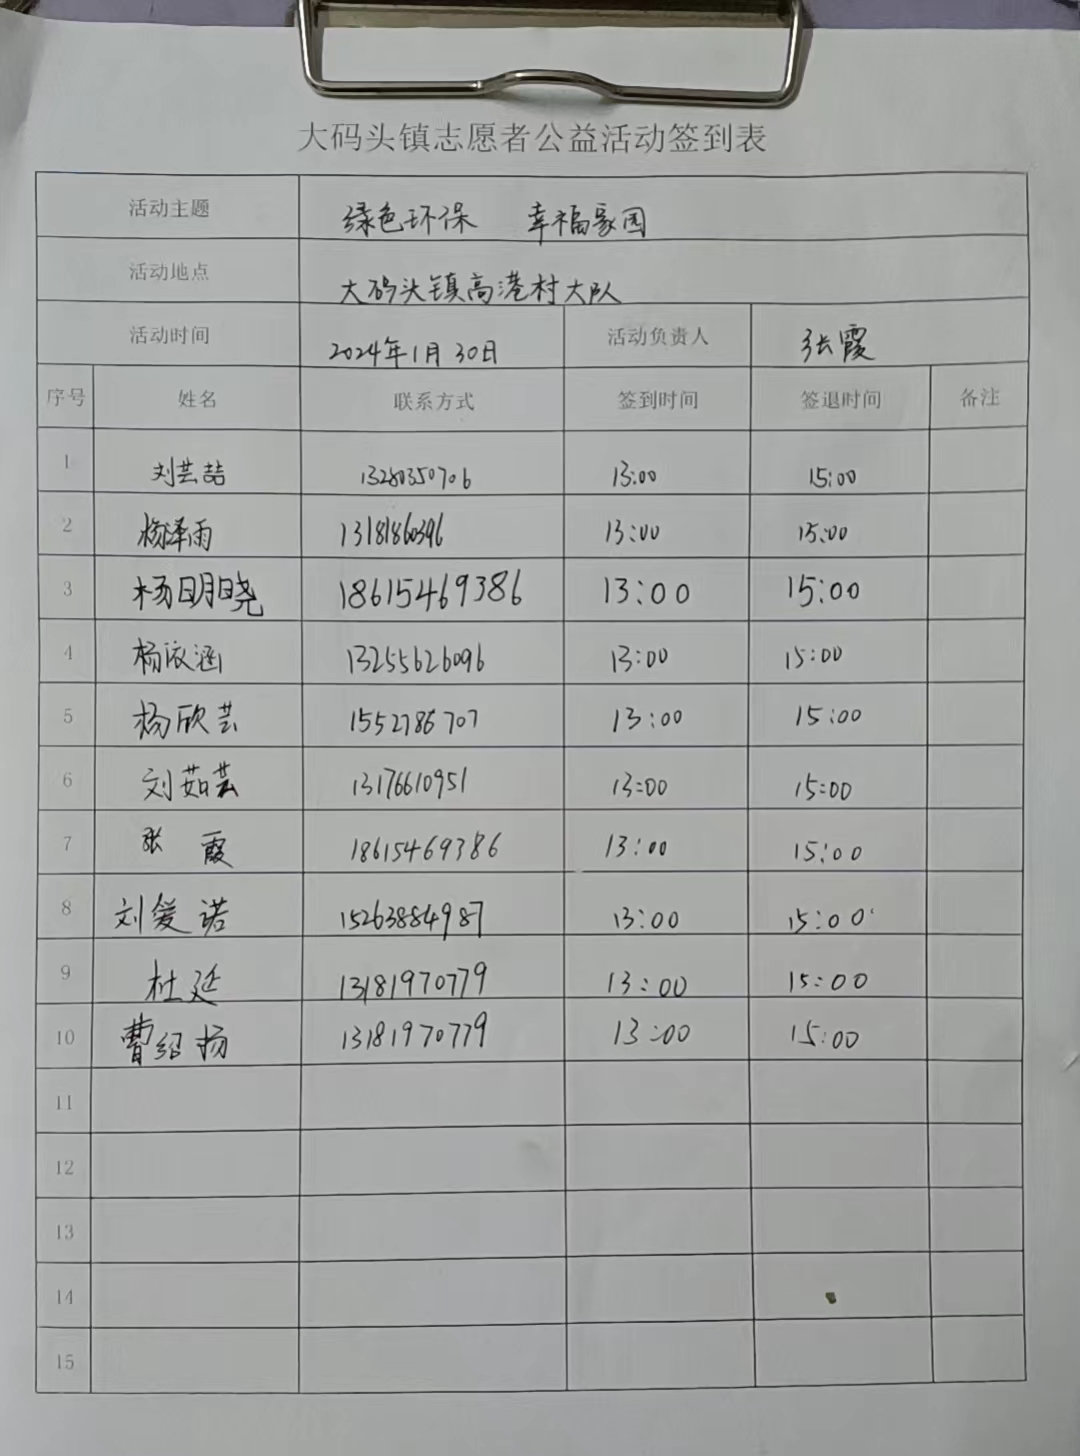 大码头镇志愿者公益活动签到表
活动主题 绿色环保 幸福家园
活动地点 大码头镇高港村大队
活动时间 2024年1月30日 活动负责人 张霞
序号 姓名 联系方式 签到时间 签退时间 备注
1 刘芸喆 13280350706 13:00 15:00
2 杨泽雨 13181860396 13:00 15:00
3 杨明晓 18615469386 13:00 15:00
4 杨依涵 13255626096 13:00 15:00
5 杨欣芸 1552786707 13:00 15:00
6 刘茹芸 13176610951 13:00 15:00
7 张霞 18615469386 13:00 15:00
8 刘爱诺 15263884987 13:00 15:00
9 杜廷 13181970779 13:00 15:00
10 曹绍扬 13181970779 13:00 15:00
11
12
13
14
15